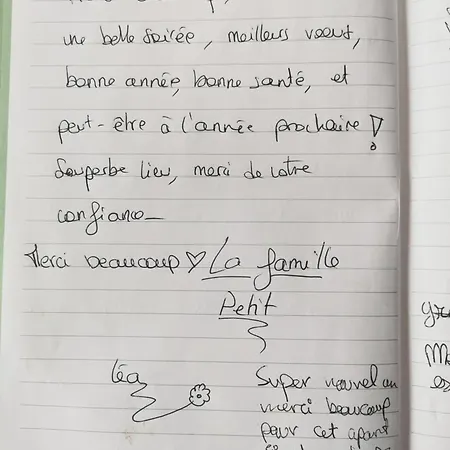 une belle soirée, meilleurs voeux,
bonne année, bonne santé, et
peut-être à l'année prochaine !
Souperbe lieu, merci de votre
confiance
Merci beaucoup ♡ La famille
Petit
Léa
Super nouvel an
merci beaucoup
pour cet apart